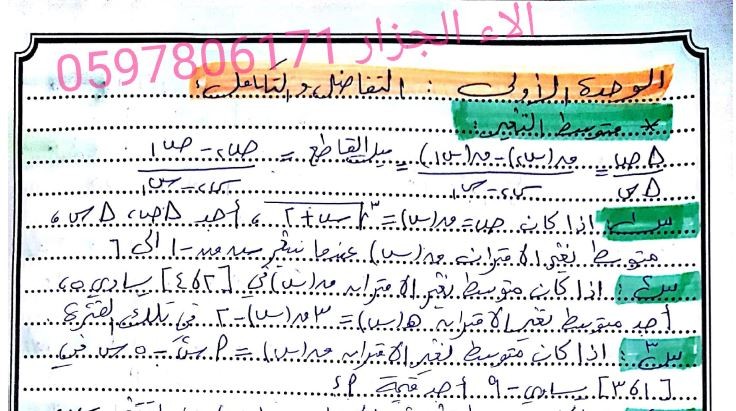 الاء الجزار 0597806171
الوحدة الأولى : التفاضل والتكامل :
* متوسط التغير :
Δص / Δس = (ق(س٢) - ق(س١)) / (س٢ - س١) = ميل القاطع = (ص٢ - ص١) / (س٢ - س١)
س١: اذا كان ص = ق(س) = ³√(س + ٢) ، أجد Δص ، Δس ،
متوسط تغير الاقتران ق(س) عندما تتغير س من -١ الى ٦
س٢: اذا كان متوسط تغير الاقتران ق(س) في [٢،٤] يساوي ٥
أجد متوسط تغير الاقتران هـ(س) = ٣ق(س) - ٢ في تلك الفترة
س٣: اذا كان متوسط تغير الاقتران ق(س) = أس² - ٥س في
[١،٣] يساوي -٩ أجد قيمة أ؟